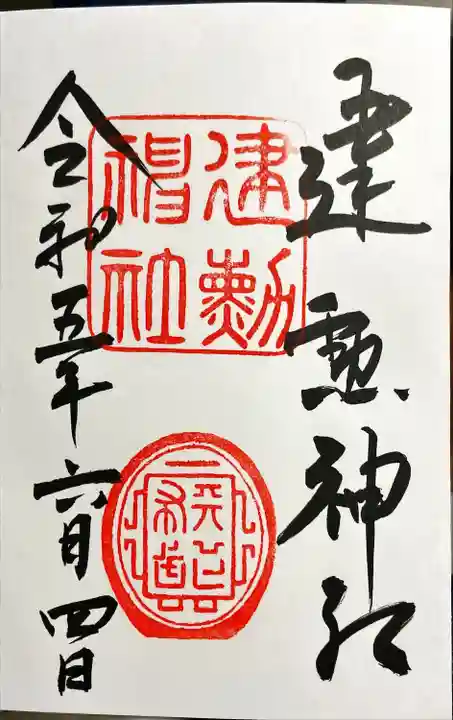 建勲神社
建勲
神社
天下布武
令和五年六月四日